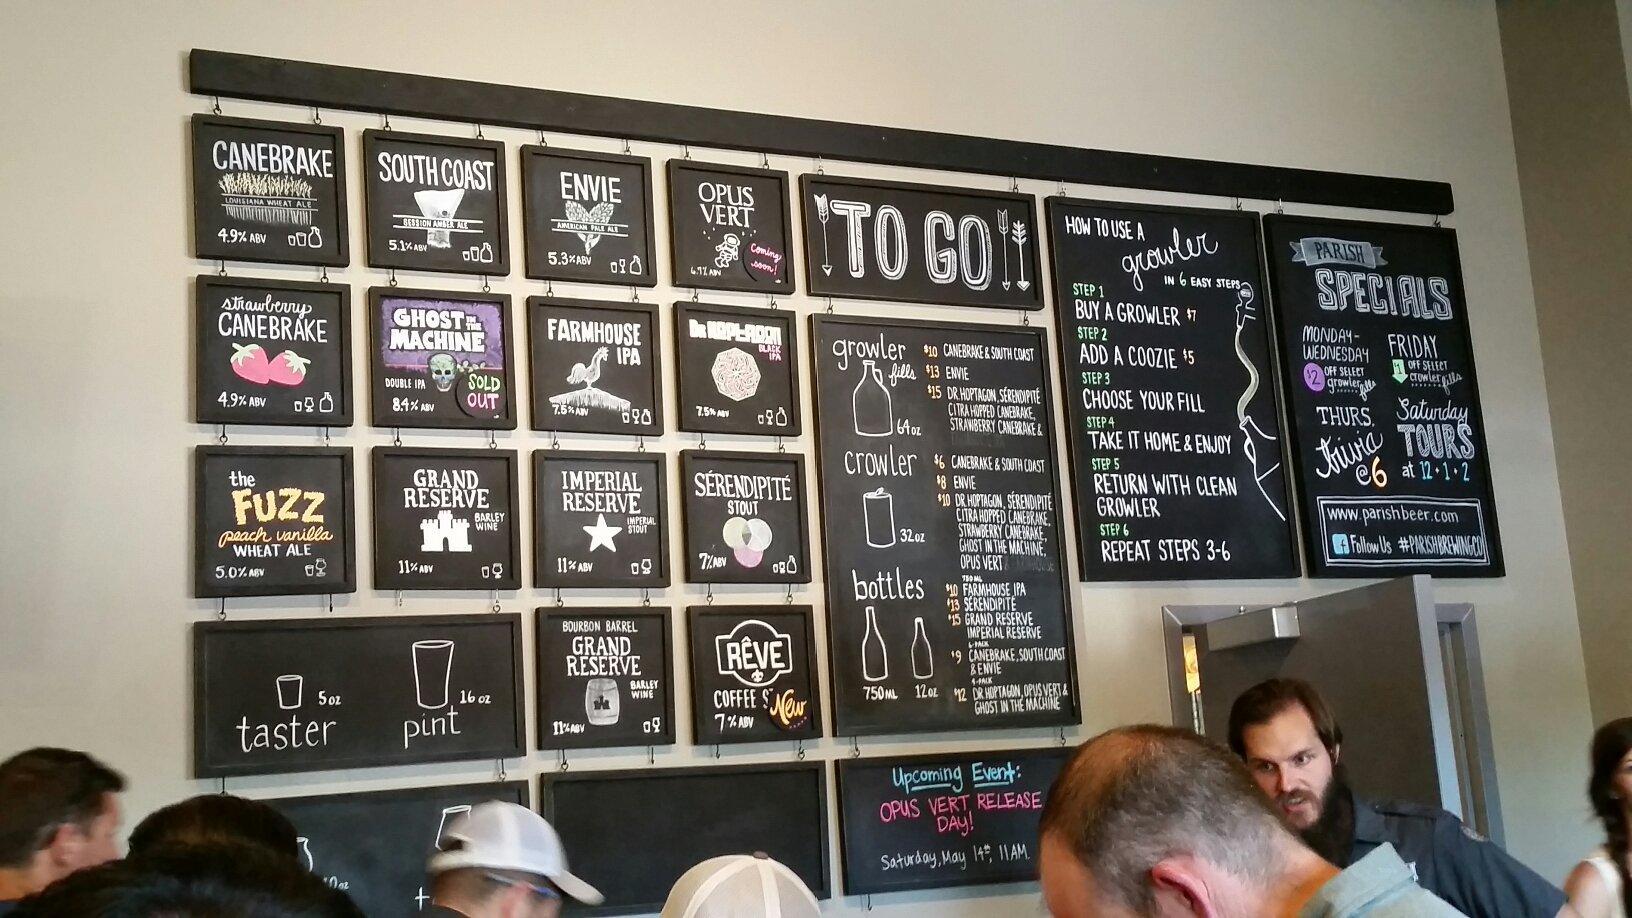 CANEBRAKE
LOUISIANA WHEAT ALE
4.9% ABV
SOUTH COAST
SESSION AMBER ALE
5.1% ABV
ENVIE
AMERICAN PALE ALE
5.3% ABV
OPUS
VERT
Coming
soon!
6.7% ABV
strawberry
CANEBRAKE
4.9% ABV
GHOST IN THE
MACHINE
DOUBLE IPA
8.4% ABV
SOLD
OUT
FARMHOUSE
IPA
7.5% ABV
BLACK
IPA
7.5% ABV
the
FUZZ
peach vanilla
WHEAT ALE
5.0% ABV
GRAND
RESERVE
BARLEY
WINE
11% ABV
IMPERIAL
RESERVE
IMPERIAL
STOUT
11% ABV
SÉRENDIPITÉ
STOUT
7% ABV
5oz
taster
16 oz
pint
BOURBON BARREL
GRAND
RESERVE
BARLEY
WINE
11% ABV
RÊVE
COFFEE S
New
7% ABV
TO GO
growler
fills
64oz
$10 CANEBRAKE & SOUTH COAST
$13 ENVIE
$15 DR.HOPTAGON, SÉRENDIPITÉ
CITRA HOPPED CANEBRAKE,
STRAWBERRY CANEBRAKE &
crowler
32oz
$6 CANEBRAKE & SOUTH COAST
$8 ENVIE
$10 DR.HOPTAGON, SÉRENDIPITÉ
CITRA HOPPED CANEBRAKE,
STRAWBERRY CANEBRAKE,
GHOST IN THE MACHINE,
OPUS VERT
bottles
750ML 12oz
750 ML
$10 FARMHOUSE IPA
$13 SÉRENDIPITÉ
$15 GRAND RESERVE
IMPERIAL RESERVE
6-PACK
$9 CANEBRAKE, SOUTH COAST
& ENVIE
4-PACK
$12 DR.HOPTAGON, OPUS VERT &
GHOST IN THE MACHINE
Upcoming Event:
OPUS VERT RELEASE
DAY!
Saturday, May 14th, 11AM
HOW TO USE A
growler
IN 6 EASY STEPS
STEP 1
BUY A GROWLER $7
STEP 2
ADD A COOZIE $5
STEP 3
CHOOSE YOUR FILL
STEP 4
TAKE IT HOME & ENJOY
STEP 5
RETURN WITH CLEAN
GROWLER
STEP 6
REPEAT STEPS 3-6
PARISH
SPECIALS
MONDAY-
WEDNESDAY
$2 OFF SELECT
growler fills
FRIDAY
$1 OFF SELECT
crowler fills
THURS.
trivia
@6
Saturday
TOURS
at 12 • 1 • 2
www.parishbeer.com
f Follow Us #PARISHBREWINGCO